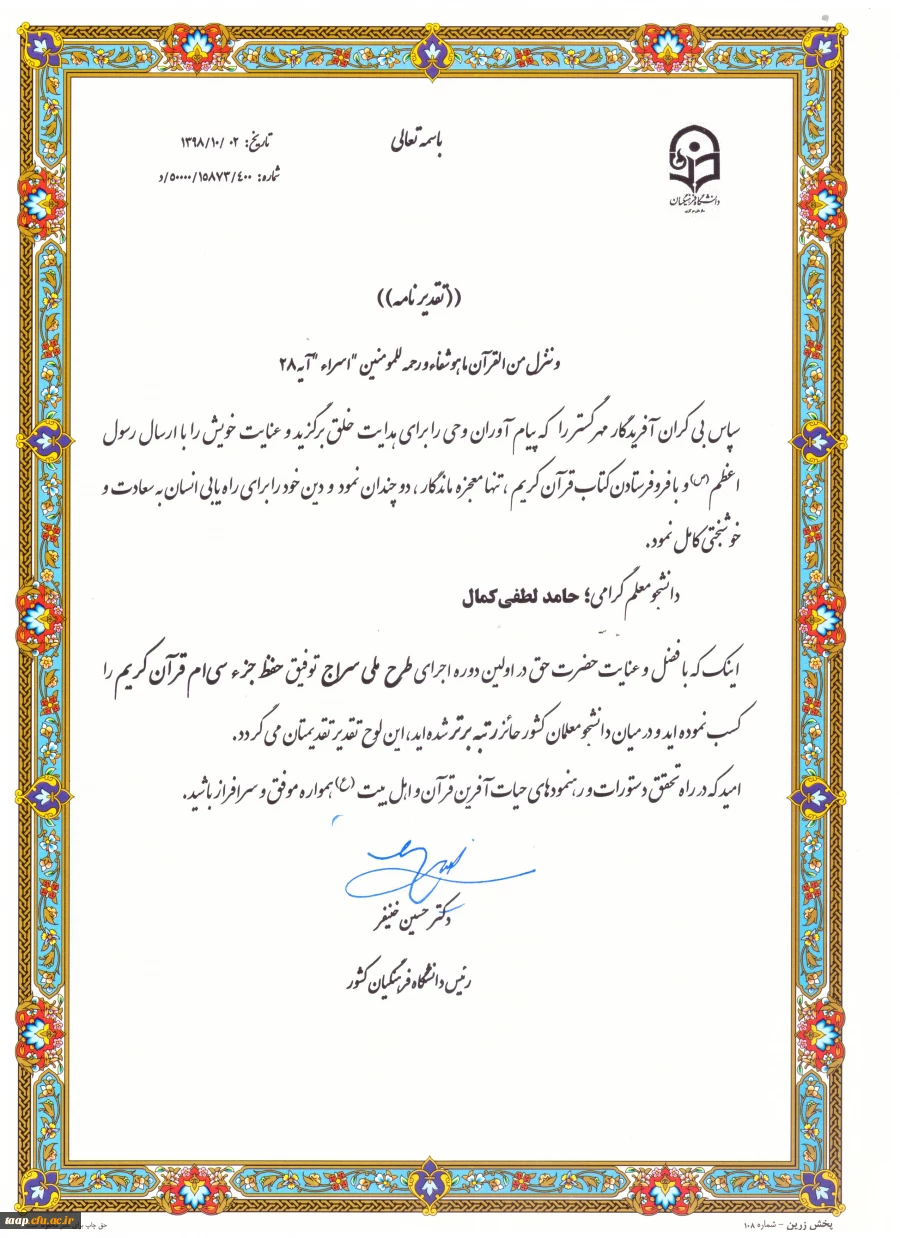 باسمه تعالی
تاریخ: ۱۳۹۸/۱۰/۰۲
شماره: ۵۰۰۰۰/۱۵۸۷۳/۴۰۰/د
دانشگاه فرهنگیان
((تقدیر نامه))
و ننزل من القرآن ما هو شفاء و رحمه للمومنین "اسراء "آیه ۲۸
سپاس بی کران آفریدگار مهرگستر را که پیام آوران وحی را برای هدایت خلق برگزید و عنایت خویش را با ارسال رسول
اعظم (ص) و با فرو فرستادن کتاب قرآن کریم ، تنها معجزه ماندگار ، دو چندان نمود و دین خود را برای راه یابی انسان به سعادت و
خوشبختی کامل نمود.
دانشجو معلم گرامی؛ حامد لطفی کمال
اینک که با فضل و عنایت حضرت حق در اولین دوره اجرای طرح ملی سراج توفیق حفظ جزء سی ام قرآن کریم را
کسب نموده اید و در میان دانشجو معلمان کشور حائز رتبه برتر شده اید، این لوح تقدیر تقدیمتان می گردد.
امید که در راه تحقق دستورات و رهنمودهای حیات آفرین قرآن و اهل بیت (ع) همواره موفق و سرافراز باشید.
دکتر حسین خنیفر
رئیس دانشگاه فرهنگیان کشور
پخش زرین - شماره ۱۰۸
حق چاپ
taap.cfu.ac.ir